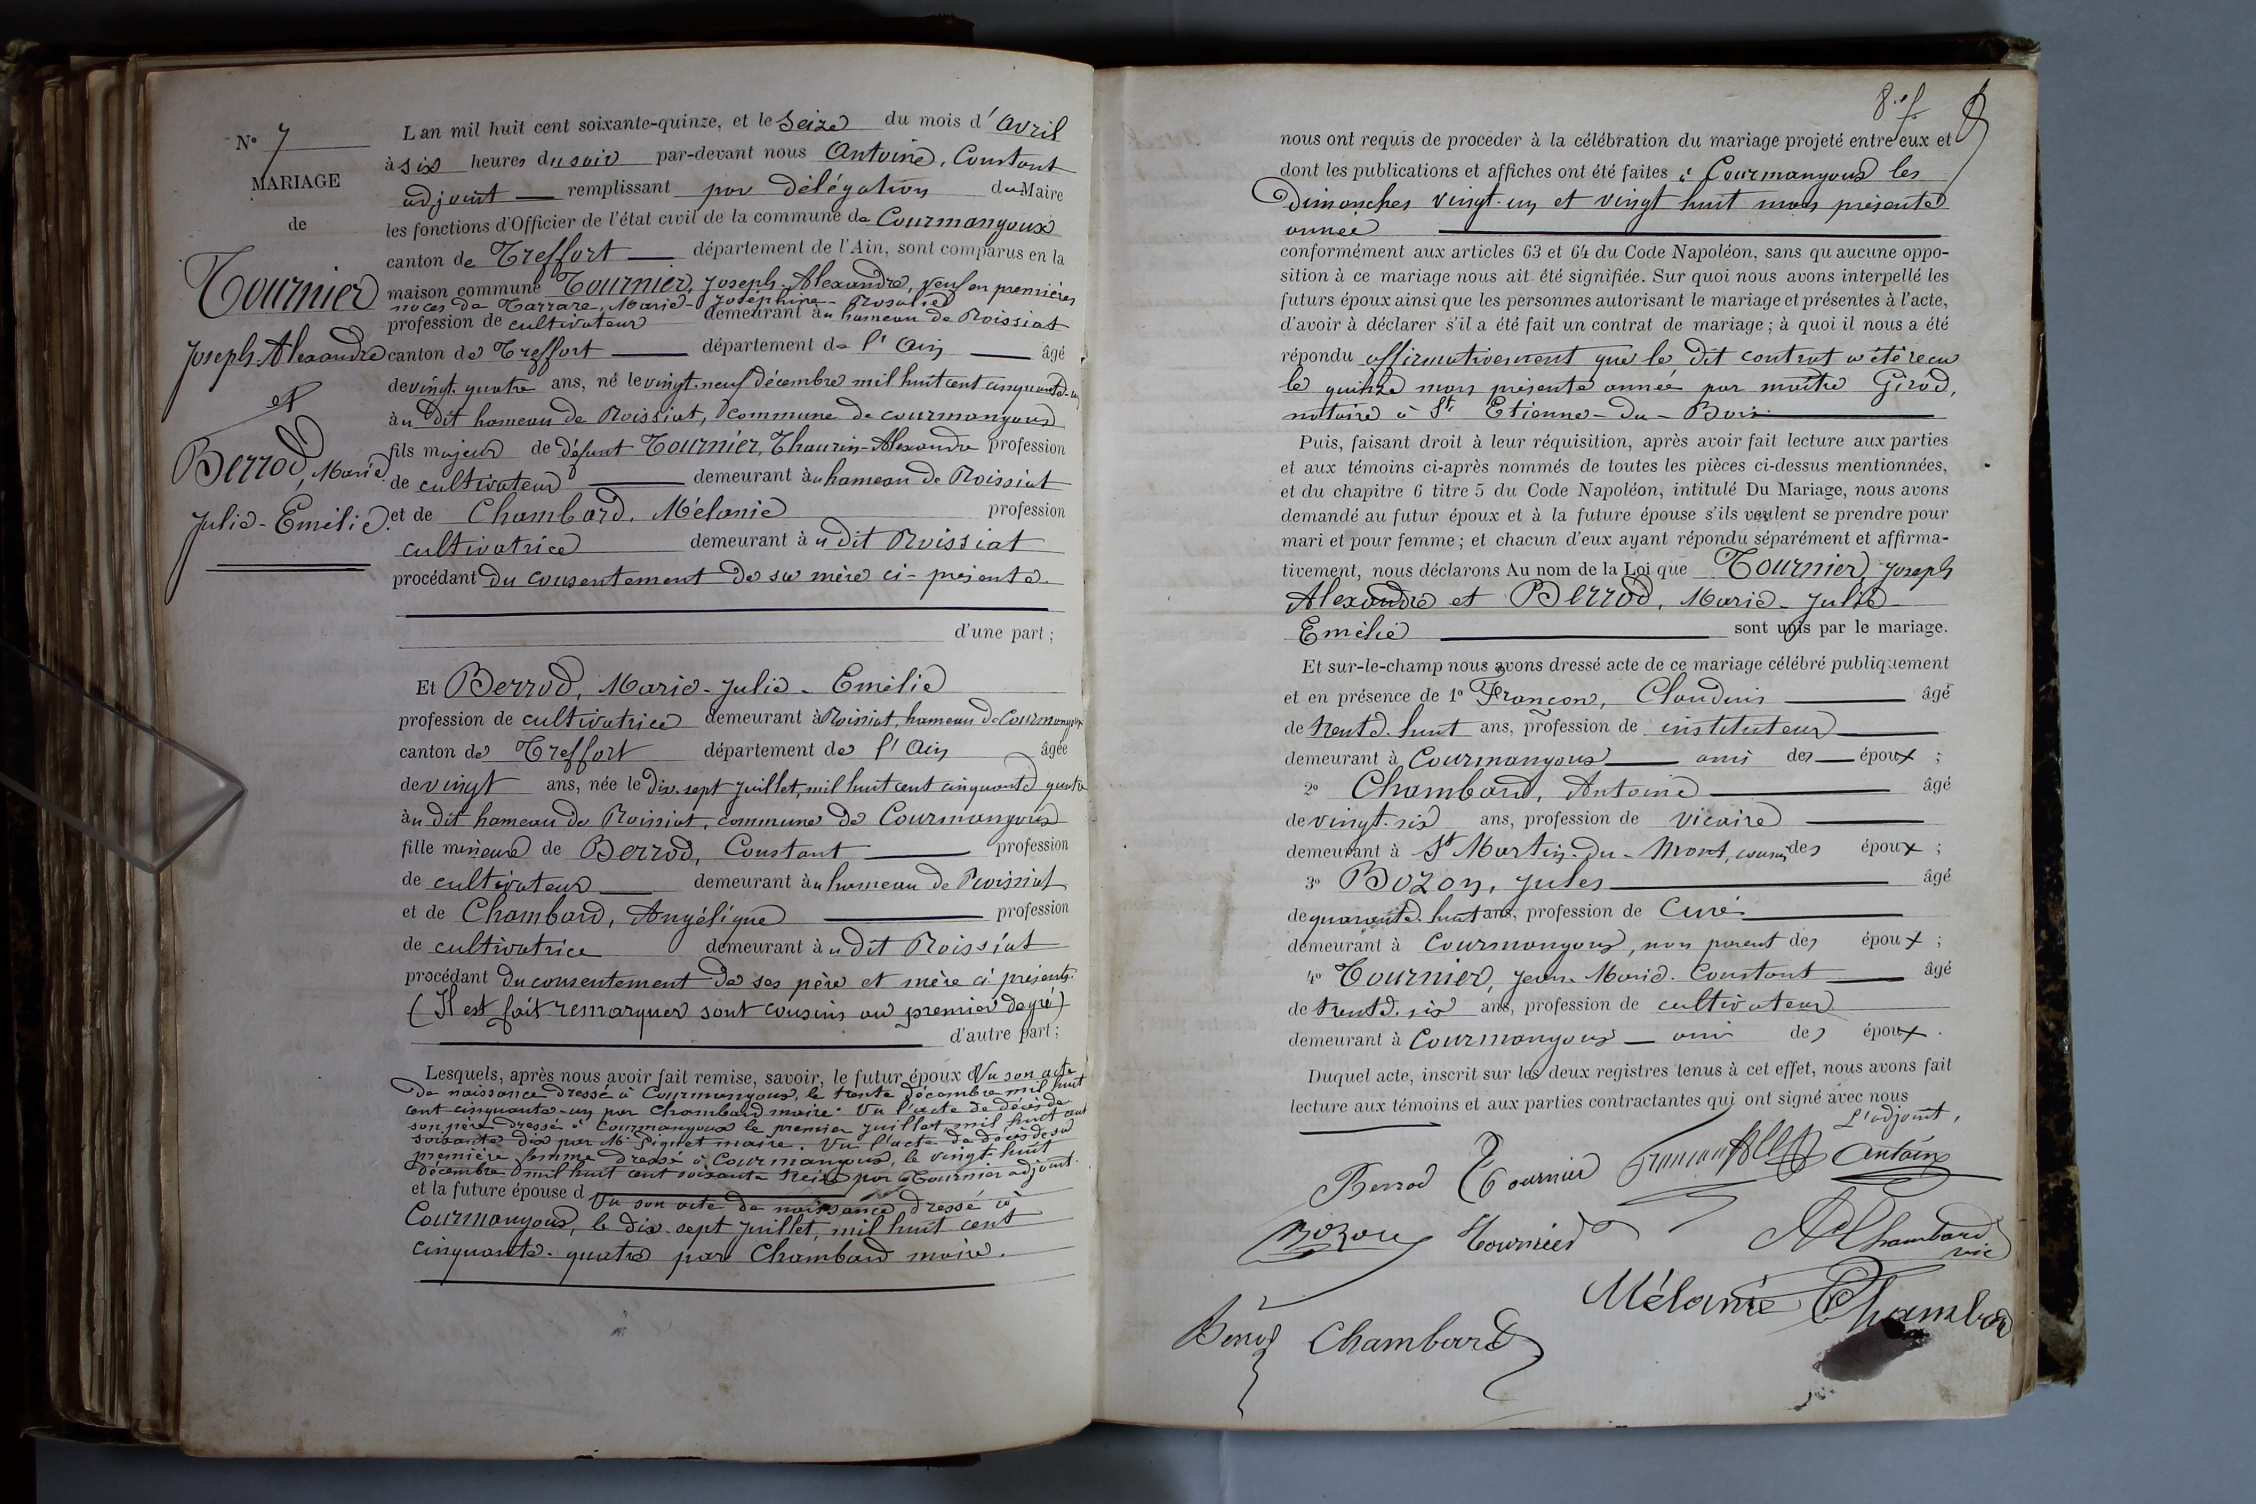 N° 7
MARIAGE
de
Tournier
Joseph Alexandre
et
Berrod, Marie
Julie-Emélie.
L'an mil huit cent soixante-quinze, et le seize du mois d'avril
à six heures du soir par-devant nous Antoine, Constant
adjoint remplissant par délégation du Maire
les fonctions d'Officier de l'état civil de la commune de Courmangoux
canton de Treffort département de l'Ain, sont comparus en la
maison commune Tournier, Joseph-Alexandre, veuf en premières
noces de Tarrare, Marie-Joséphine-Rosalie
profession de cultivateur demeurant au hameau de Roissiat
canton de Treffort département de l'Ain âgé
de vingt-quatre ans, né le vingt-neuf décembre mil huit cent cinquante-un
au dit hameau de Roissiat, commune de Courmangoux
fils majeur de défunt Tournier, Thaurin-Alexandre profession
de cultivateur demeurant au hameau de Roissiat
et de Chambard, Mélanie profession
cultivatrice demeurant au dit Roissiat
procédant du consentement de sa mère ci-présente.
d'une part ;
Et Berrod, Marie-Julie-Emélie
profession de cultivatrice demeurant à Roissiat, hameau de Courmangoux
canton de Treffort département de l'Ain âgée
de vingt ans, née le dix-sept juillet, mil huit cent cinquante quatre
au dit hameau de Roissiat, commune de Courmangoux
fille mineure de Berrod, Constant profession
de cultivateur demeurant au hameau de Roissiat
et de Chambard, Angélique profession
de cultivatrice demeurant au dit Roissiat
procédant du consentement de ses père et mère ci présents.
(Il est fait remarquer sont cousins au premier degré)
d'autre part ;
Lesquels, après nous avoir fait remise, savoir, le futur époux d Vu son acte
de naissance dressé à Courmangoux, le trente décembre mil huit
cent cinquante-un par Chambard maire. Vu l'acte de décès de
son père dressé à Courmangoux le premier juillet, mil huit cent
soixante dix par Mr Pignet maire. Vu l'acte de décès de sa
première femme dressé à Courmangoux, le vingt-huit
décembre mil huit cent soixante treize par Tournier adjoint.
et la future épouse d Vu son acte de naissance dressé à
Courmangoux, le dix-sept juillet, mil huit cent
cinquante-quatre par Chambard maire.
8.e f.
nous ont requis de procéder à la célébration du mariage projeté entre eux et
dont les publications et affiches ont été faites à Courmangoux les
Dimanches vingt-un et vingt huit mars présente
année
conformément aux articles 63 et 64 du Code Napoléon, sans qu'aucune oppo-
sition à ce mariage nous ait été signifiée. Sur quoi nous avons interpellé les
futurs époux ainsi que les personnes autorisant le mariage et présentes à l'acte,
d'avoir à déclarer s'il a été fait un contrat de mariage ; à quoi il nous a été
répondu affirmativement que le dit contrat a été reçu
le quinze mars présente année par maître Girod,
notaire à St Etienne-du-Bois.
Puis, faisant droit à leur réquisition, après avoir fait lecture aux parties
et aux témoins ci-après nommés de toutes les pièces ci-dessus mentionnées,
et du chapitre 6 titre 5 du Code Napoléon, intitulé Du Mariage, nous avons
demandé au futur époux et à la future épouse s'ils veulent se prendre pour
mari et pour femme ; et chacun d'eux ayant répondu séparément et affirma-
tivement, nous déclarons Au nom de la Loi que Tournier, Joseph
Alexandre et Berrod, Marie-Julie-
Emélie sont unis par le mariage.
Et sur-le-champ nous avons dressé acte de ce mariage célébré publiquement
et en présence de 1° Françon, Claudius âgé
de trente-huit ans, profession de instituteur
demeurant à Courmangoux ami des époux ;
2° Chambard, Antoine âgé
de vingt-six ans, profession de vicaire
demeurant à St Martin-du-Mont, cousin des époux ;
3° Bozon, Jules âgé
de quarante-huit ans, profession de Curé
demeurant à Courmangoux, non parent des époux ;
4° Tournier, Jean-Marie-Constant âgé
de trente-six ans, profession de cultivateur
demeurant à Courmangoux ami des époux.
Duquel acte, inscrit sur les deux registres tenus à cet effet, nous avons fait
lecture aux témoins et aux parties contractantes qui ont signé avec nous
L'adjoint,
Berrod Tournier Françon Antoine
Bozon Tournier A Chambard
vic
Mélanie Chambard
Berrod Chambard